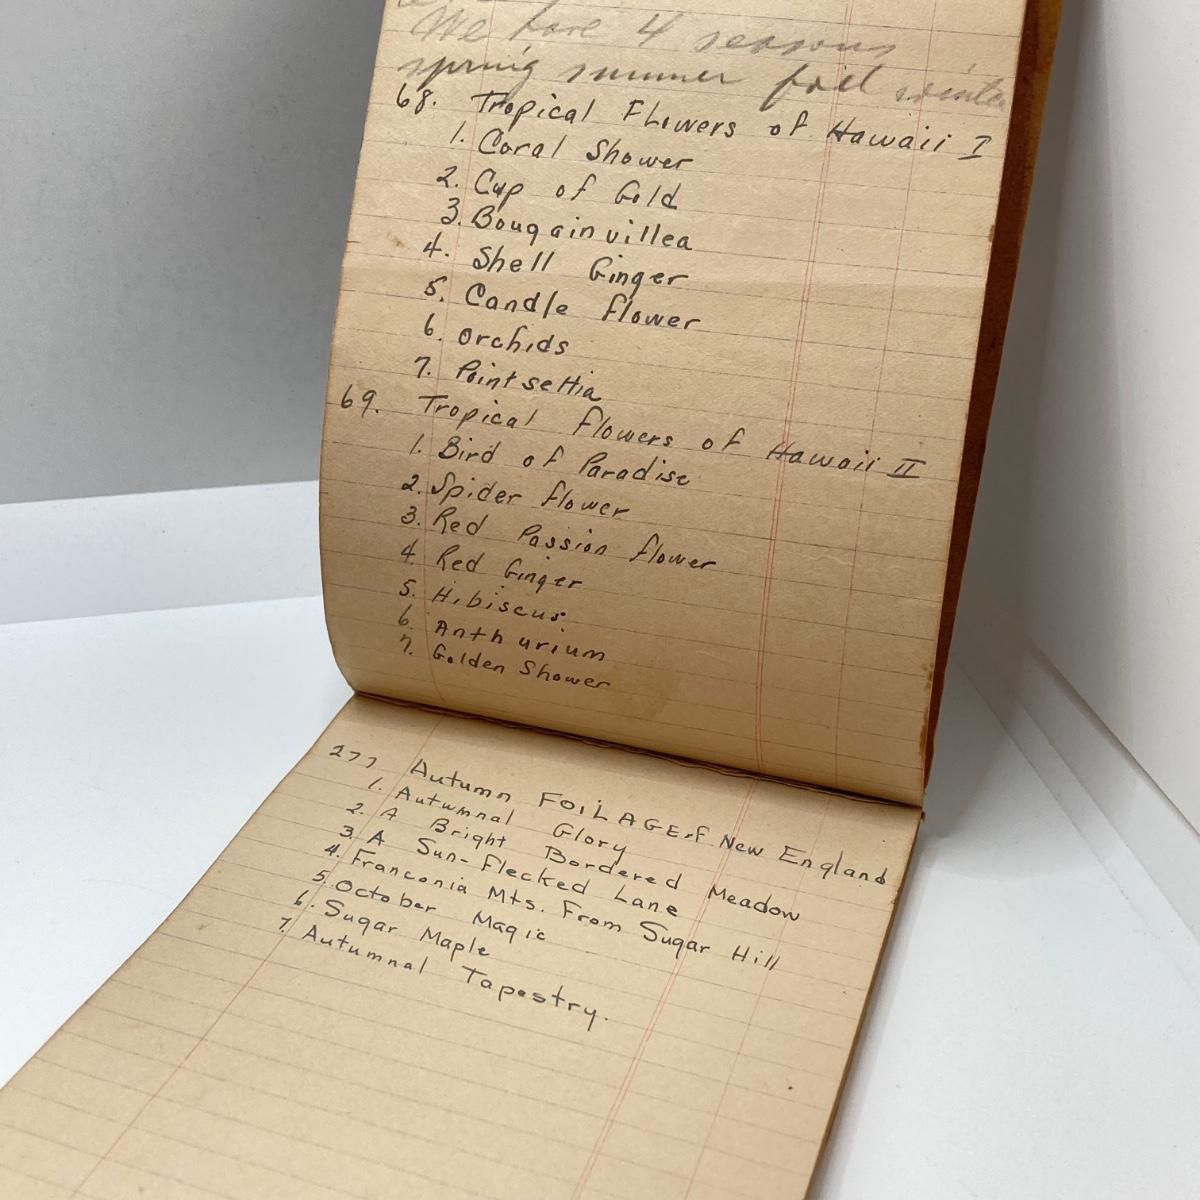 We have 4 seasons
spring summer fall winter
68. Tropical Flowers of Hawaii I
1. Coral Shower
2. Cup of Gold
3. Bougainvillea
4. Shell Ginger
5. Candle flower
6. orchids
7. Pointsettia
69. Tropical flowers of Hawaii II
1. Bird of Paradise
2. Spider flower
3. Red Passion flower
4. Red Ginger
5. Hibiscus
6. Anthurium
7. Golden Shower
277 Autumn FOiLAGE of New England
1. Autumnal Glory
2. A Bright Bordered Meadow
3. A Sun-flecked Lane
4. Franconia Mts. From Sugar Hill
5. October Magic
6. Sugar Maple
7. Autumnal Tapestry.